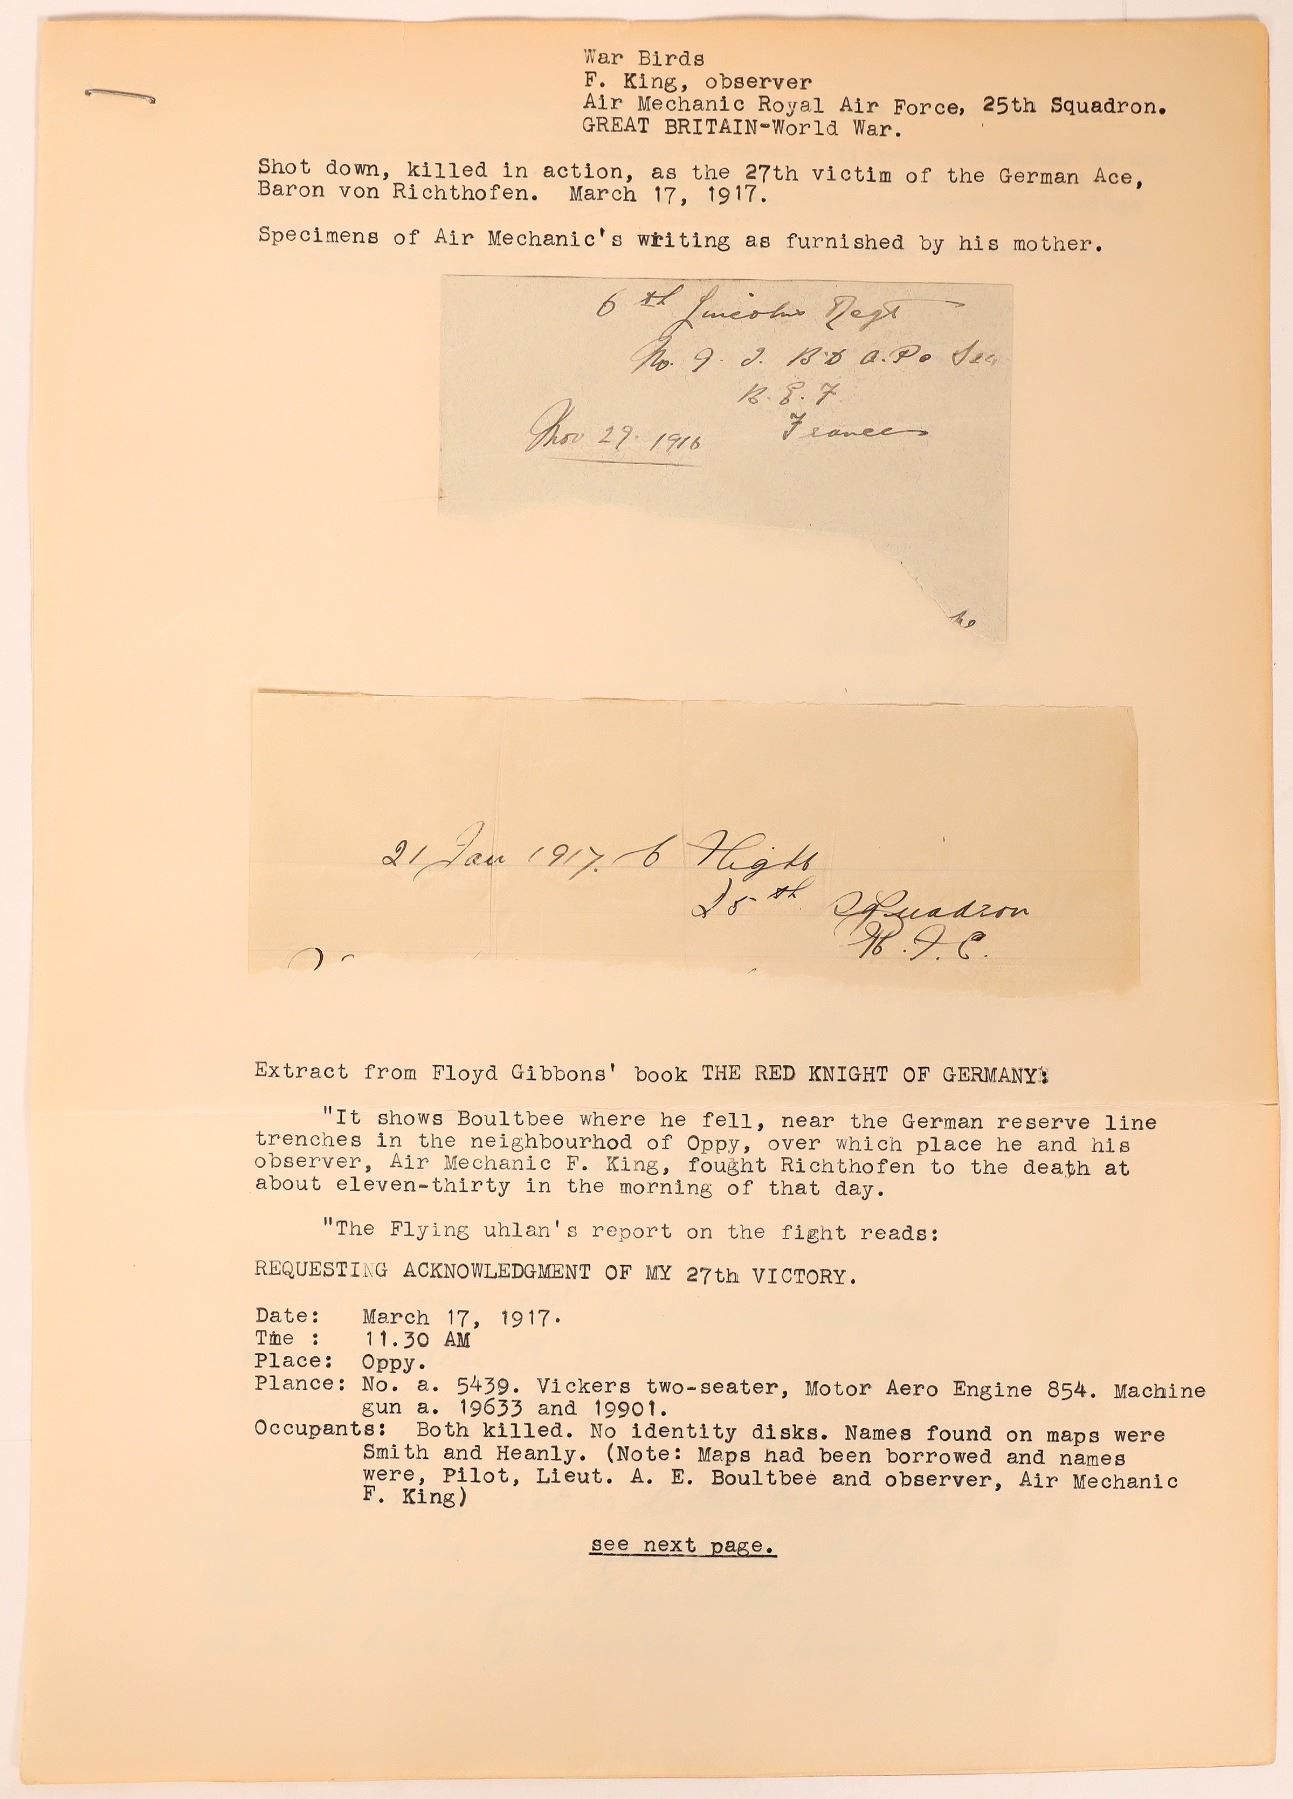 War Birds
F. King, observer
Air Mechanic Royal Air Force, 25th Squadron.
GREAT BRITAIN-World War.
Shot down, killed in action, as the 27th victim of the German Ace,
Baron von Richthofen. March 17, 1917.
Specimens of Air Mechanic's writing as furnished by his mother.
6th Lincolns Regt
No. 9. I. B D A.P.o Sec
B. E. F
Nov 29. 1916 France
21 Jan 1917. 6 Flight
25th Squadron
R. F. C.
Extract from Floyd Gibbons' book THE RED KNIGHT OF GERMANY:
"It shows Boultbee where he fell, near the German reserve line
trenches in the neighbourhod of Oppy, over which place he and his
observer, Air Mechanic F. King, fought Richthofen to the death at
about eleven-thirty in the morning of that day.
"The Flying uhlan's report on the fight reads:
REQUESTING ACKNOWLEDGMENT OF MY 27th VICTORY.
Date: March 17, 1917.
Tme : 11.30 AM
Place: Oppy.
Plance: No. a. 5439. Vickers two-seater, Motor Aero Engine 854. Machine
gun a. 19633 and 19901.
Occupants: Both killed. No identity disks. Names found on maps were
Smith and Heanly. (Note: Maps had been borrowed and names
were, Pilot, Lieut. A. E. Boultbee and observer, Air Mechanic
F. King)
see next page.